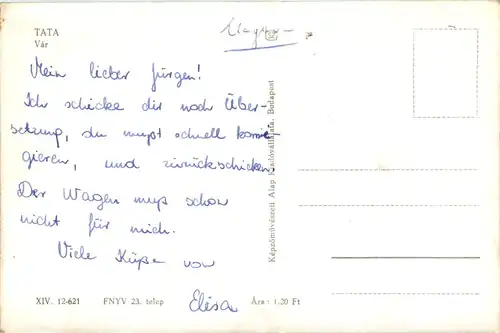 TATA
Vár
Mein lieber Jürgen!
Ich schicke dir noch Über-
setzung, du mußt schnell korri-
gieren, und zurückschicken.
Der Wagen muß schon
nicht für mich.
Viele Küße von
Elisa
XIV. 12-621 FNYV 23. telep Ára: 1.20 Ft
Képzőművészeti Alap Kiadóvállalata, Budapest